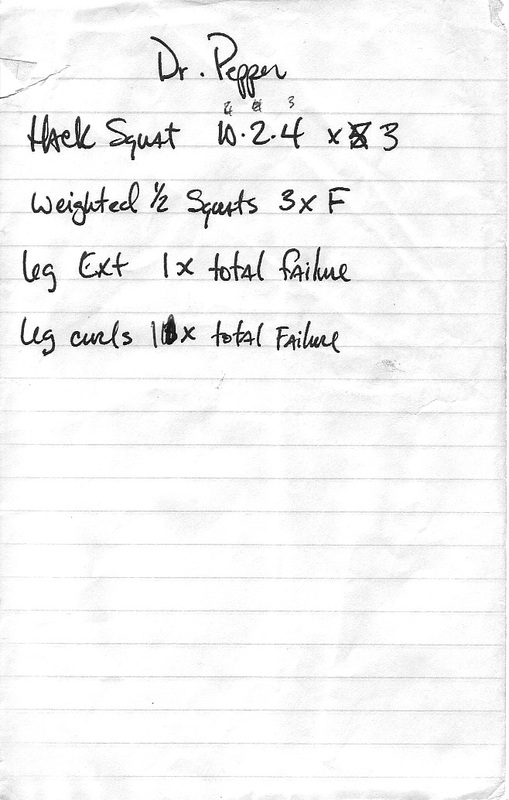 Dr. Pepper
3
Hack Squat 10·2·4 x 3
Weighted 1/2 Squats 3x F
Leg Ext 1x total failure
Leg curls 1x total Failure